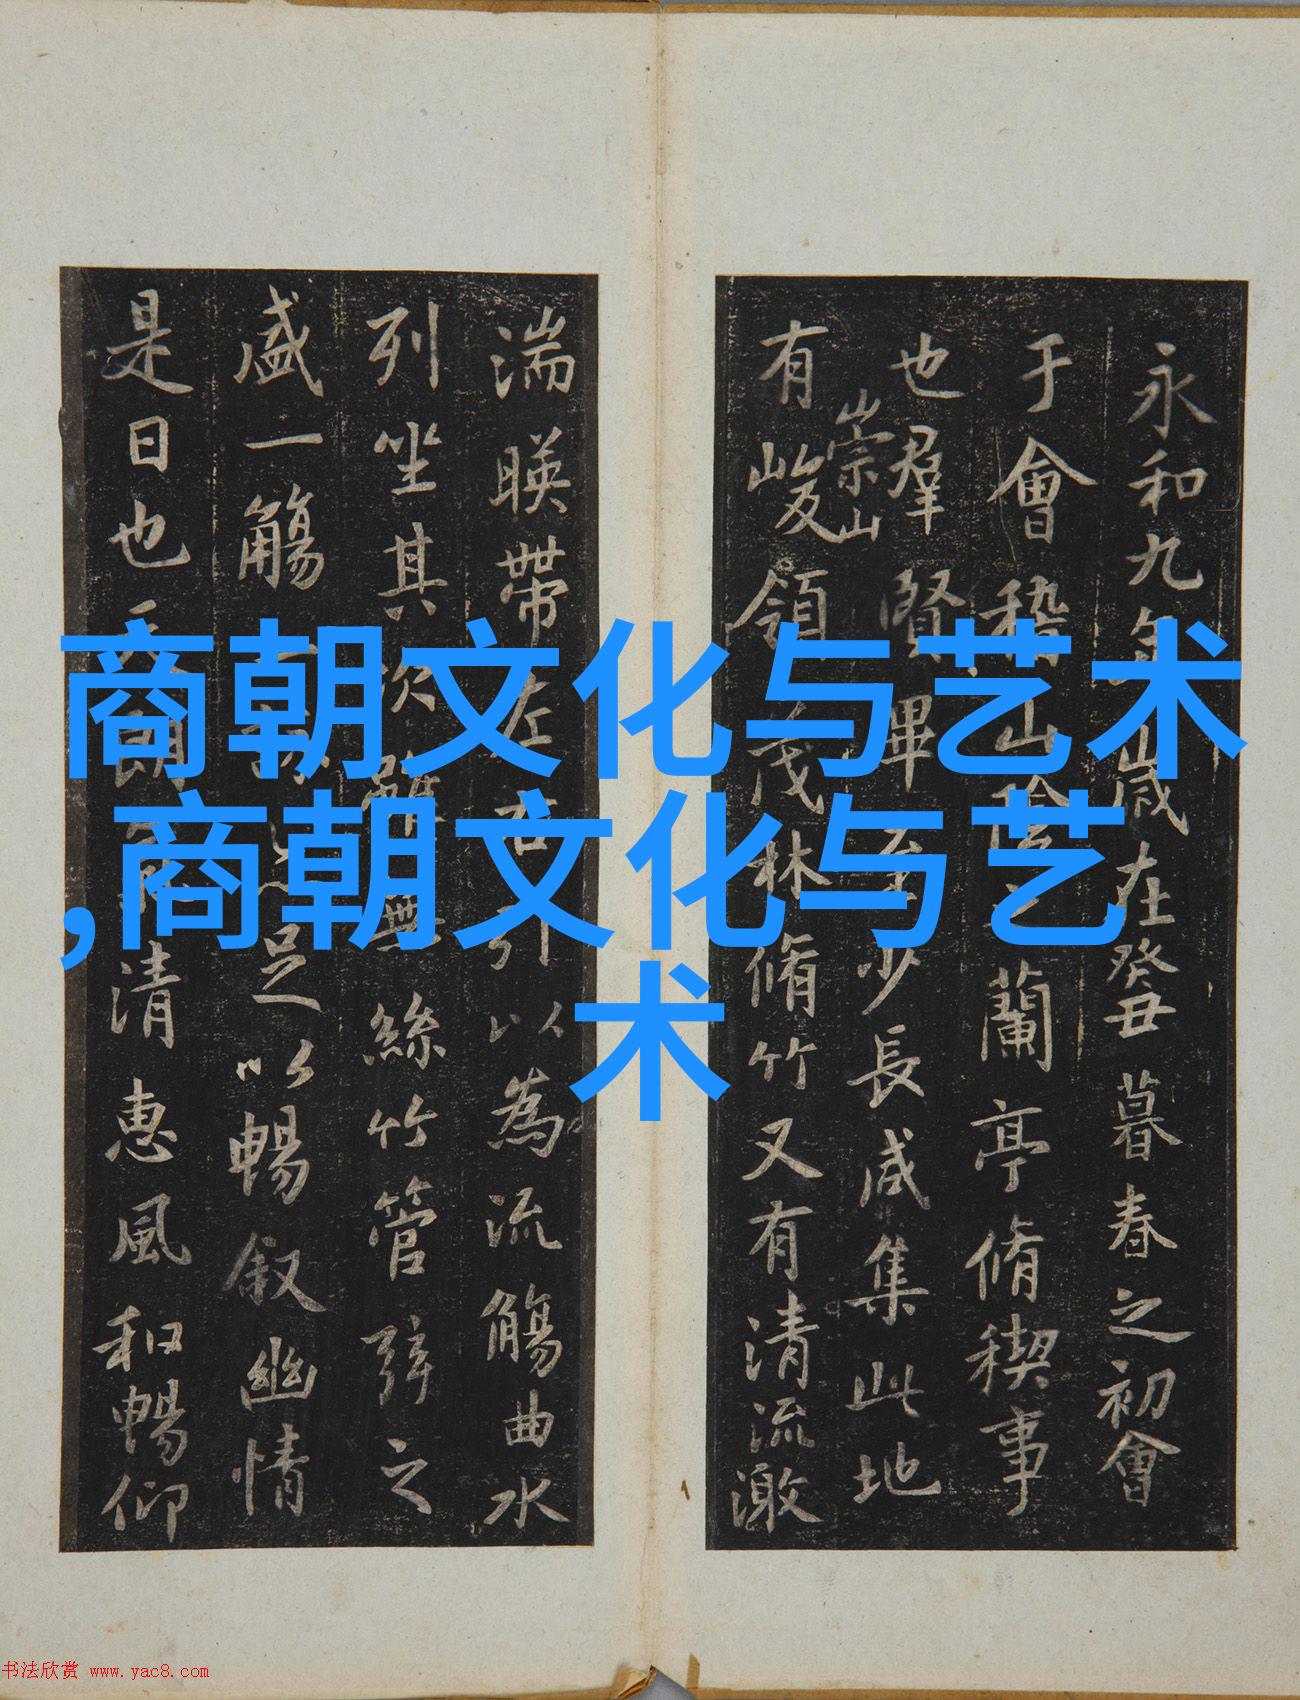 商朝文化与艺术
,商朝文化与艺
术
永和九年歲在癸丑暮春之初會
于會稽山陰之蘭亭脩稧事
也羣賢畢至少長咸集此地
有崇山峻領茂林脩竹又有清流激
湍暎帶左右引以為流觴曲水
列坐其次雖無絲竹管弦之
盛一觴一詠亦足以暢叙幽情
是日也天朗氣清惠風和暢仰
书法欣赏 www.yac8.com